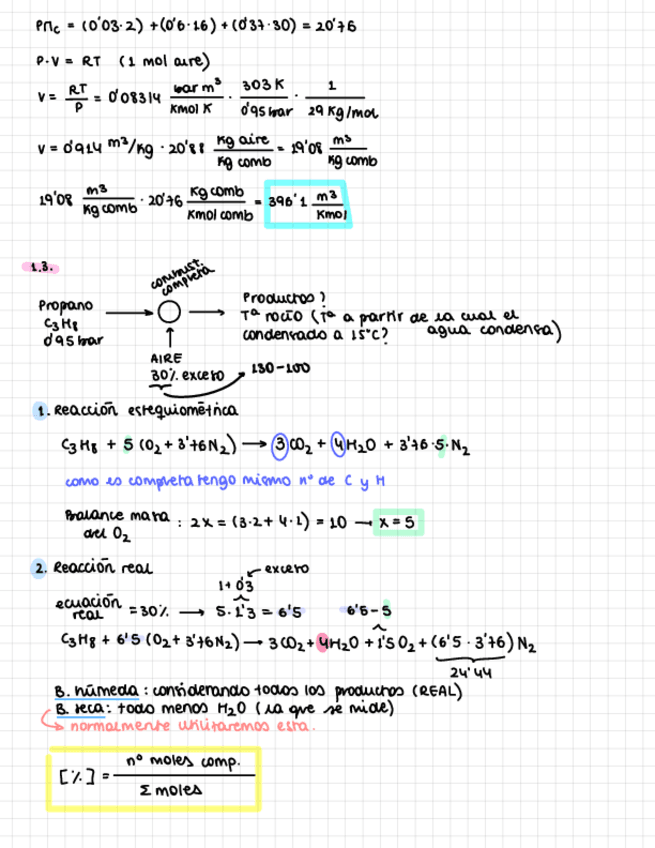 PMc = (0'03·2) + (0'6·16) + (0'37·30) = 20'76
P·V = RT (1 mol aire)
V = RT/P = 0'08314 bar m³/Kmol K · 303 K/0'95 bar · 1/29 Kg/mol
V = 0'914 m³/Kg · 20'88 Kg aire/Kg comb = 19'08 m³/Kg comb
19'08 m³/Kg comb · 20'76 Kg comb/Kmol comb = 396'1 m³/Kmol
1.3.
combust. completa
Propano
C₃H₈
0'95 bar
Productos?
Tª rocío (Tª a partir de la cual el agua condensa)
condensado a 15°C?
AIRE
30% exceso
130-100
1. Reacción estequiométrica
C₃H₈ + 5 (O₂ + 3'76 N₂) → 3CO₂ + 4H₂O + 3'76·5·N₂
como es completa tengo mismo nº de C y H
Balance masa del O₂ : 2x = (3·2 + 4·1) = 10 → x = 5
2. Reacción real
exceso
1 + 0'3
ecuación real = 30% → 5·1'3 = 6'5
6'5 - 5
C₃H₈ + 6'5 (O₂ + 3'76N₂) → 3CO₂ + 4H₂O + 1'5 O₂ + (6'5 · 3'76) N₂
24'44
B. húmeda : considerando todos los productos (REAL)
B. seca : todo menos H₂O (la que se mide)
normalmente utilizaremos esta.
[%] = nº moles comp. / Σ moles